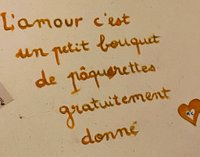 L'amour c'est
un petit bouquet
de pâquerettes
gratuitement
donné